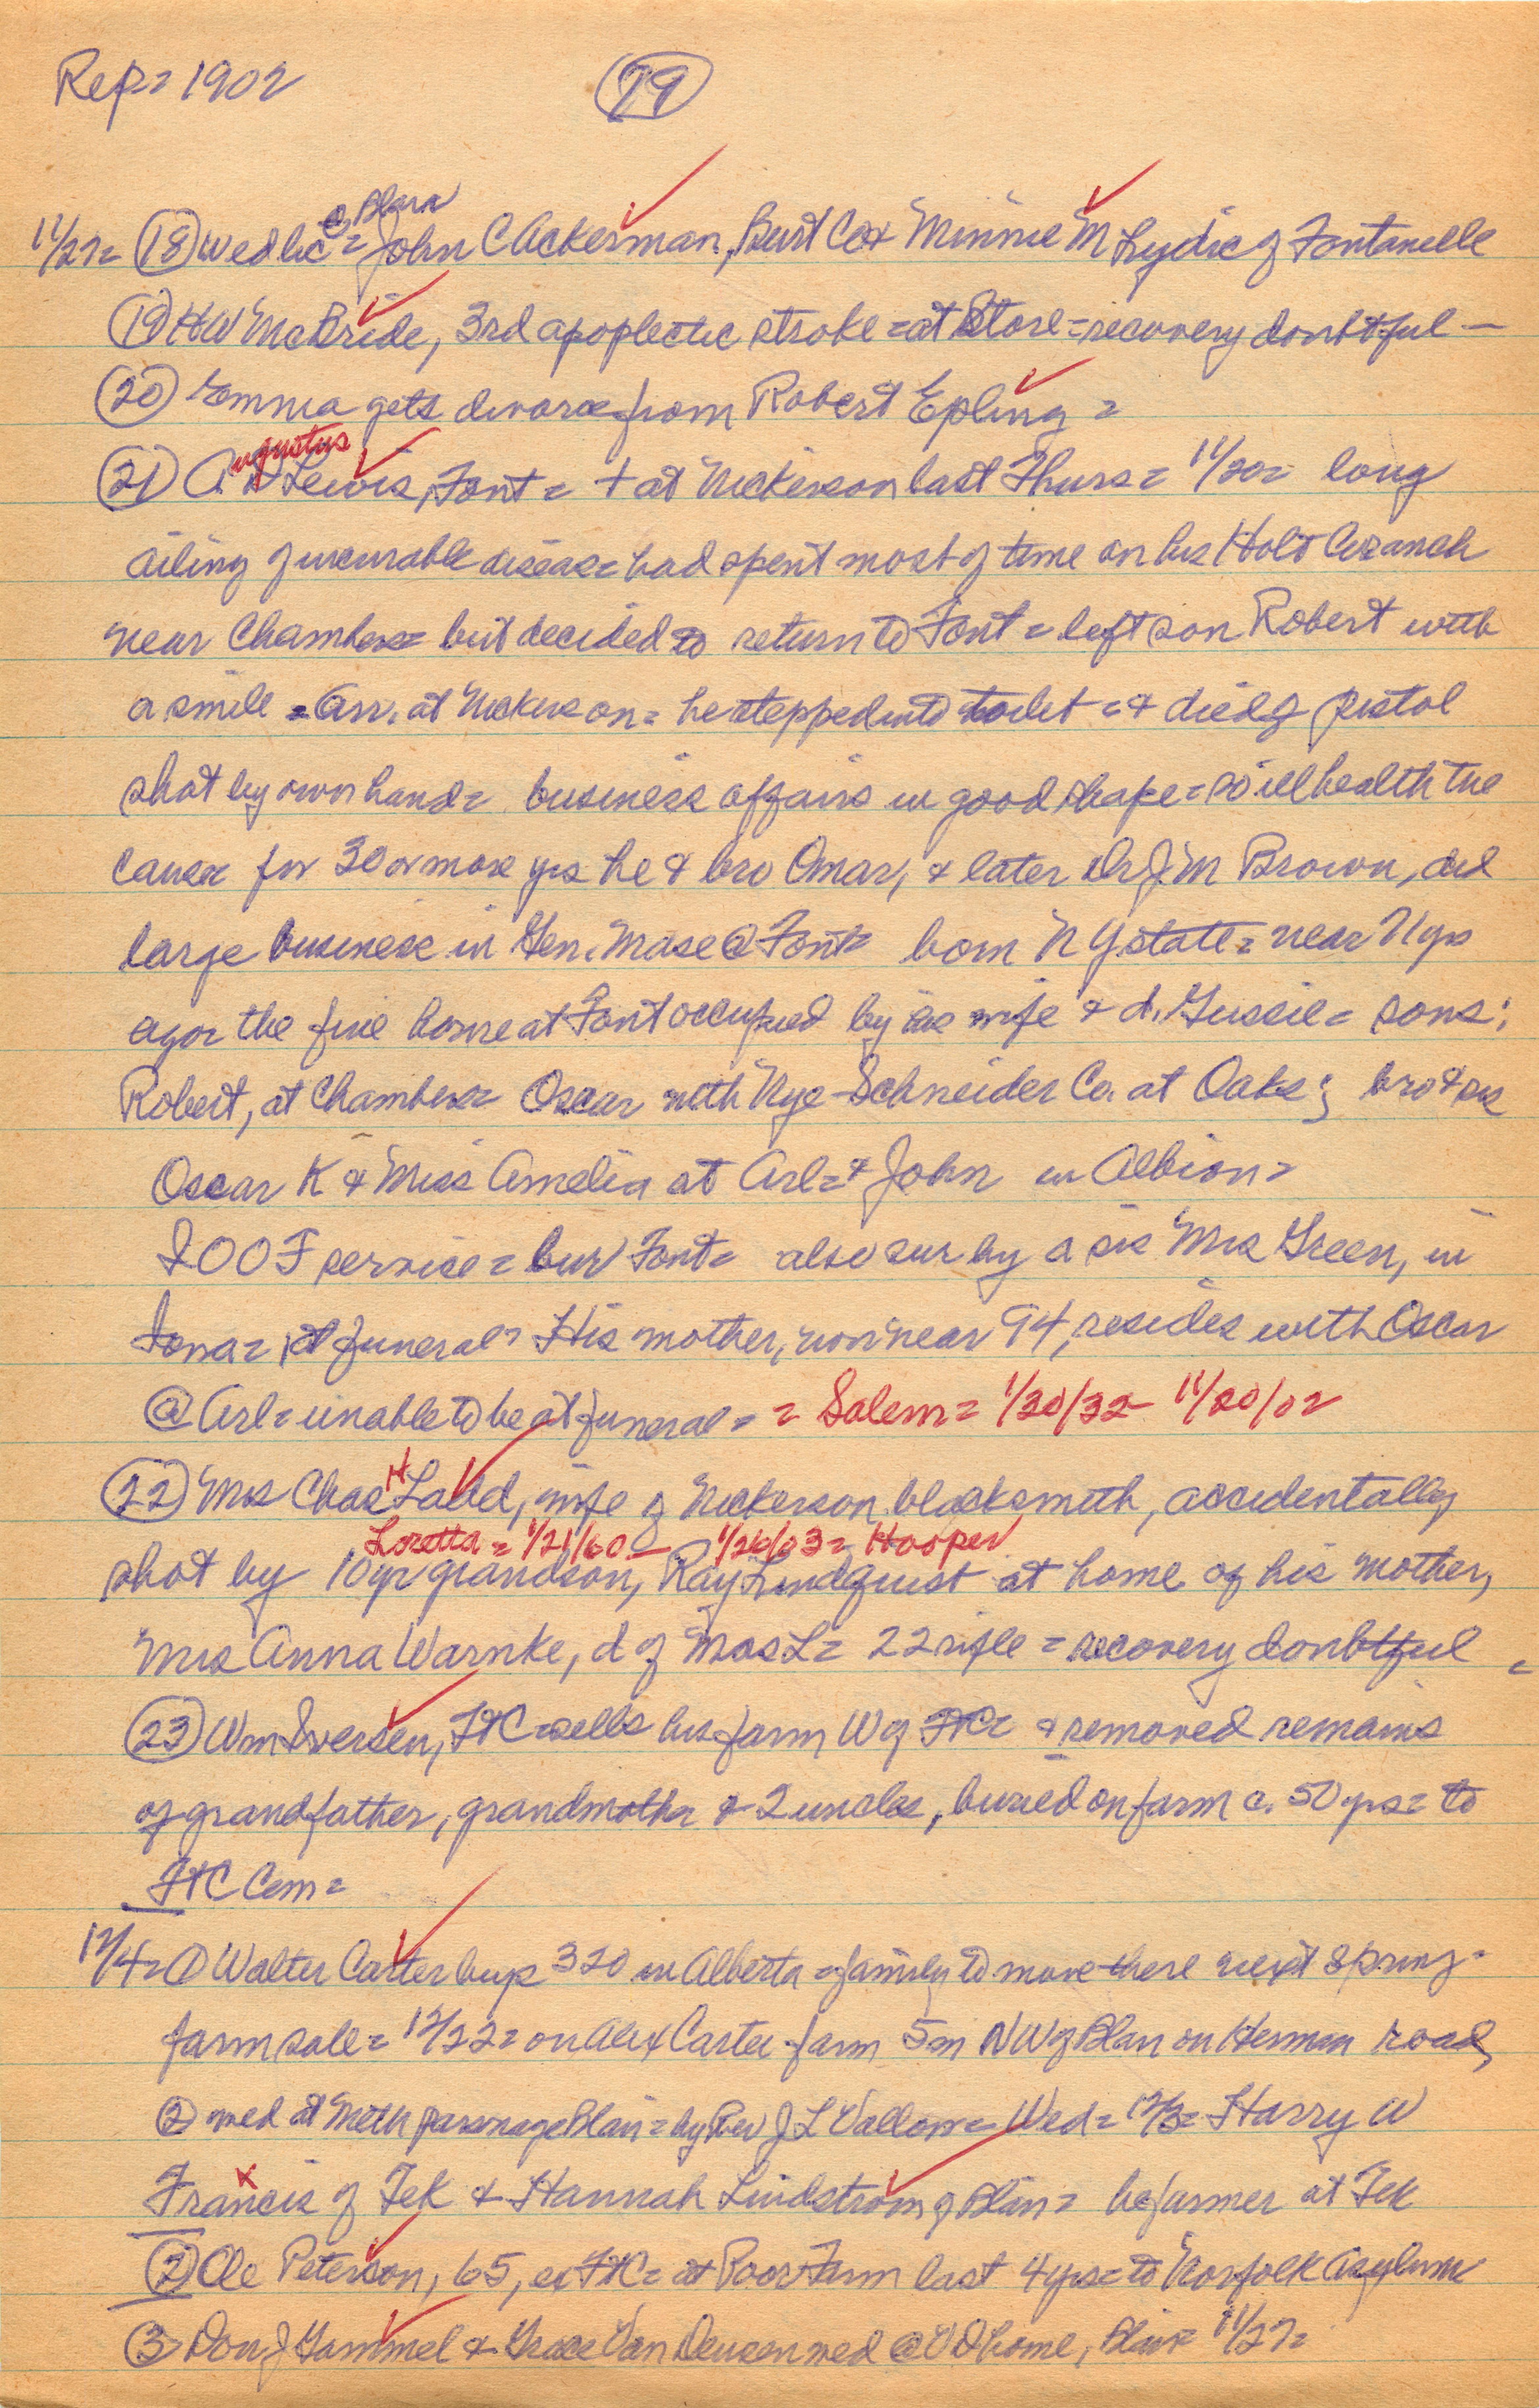 Rep= 1902
79
of Blair
11/27= 18 wed lic = John C Ackerman, Burt Co & Minnie M Lydic of Fontanelle
19 HW McBride, 3rd apoplectic stroke = at Store = recovery doubtful —
20 Emma gets divorce from Robert Epling =
ugustus
21 A. Lewis, Font = + at Nickerson last Thurs = 11/20= long
ailing of incurable disease = had spent most of time on his Holt Co ranch
near Chambers = but decided to return to Font = left son Robert with
a smile = Arr. at Nickerson = he stepped into toilet = & died of pistol
shot by own hand = business affairs in good shape = so ill health the
cause for 30 or more yrs he & bro Omar, & later Dr J M Brown, did
large business in Gen. Mdse @ Font= born N Y state = near
ago= the fine home at Font occupied by his wife & d. Gussie = sons:
Robert, at Chambers= Oscar with Nye-Schneider Co. at Oaks; bro & sis
Oscar K & Miss Amelia at Arl= & John in Albion=
IOOF service = bur Font= also sur by a sis Mrs Green, in
Iowa = at funeral= His mother, now near 94, resides with Oscar
@ Arl= unable to be at funeral = = Salem = 1/20/32- 11/20/02
22 Mrs Chas H Ladd, wife of Nickerson blacksmith, accidentally
Loretta = 1/21/60 — 1/26/03= Hooper
shot by 10 yr grandson, Ray Lindquist at home of his mother,
Mrs Anna Warnke, d of Mrs L = 22 rifle = recovery doubtful =
23 Wm Iversen, FtC sells his farm W of FtC= & removed remains
of grandfather, grandmother & 2 uncles, buried on farm c. 50 yrs = to
FtC Cem =
12/4= 1 Walter Carter buys 320 in Alberta = family to move there next spring -
farm sale = 12/22= on Alex Carter farm 5 m NW of Blair on Herman road,
2 med at Meth parsonage Blair = by Rev J L Vallow = Wed = 12/3= Harry W
Francis of Tek & Hannah Lindstrom of Blair = he farmer at Tek
2 Ole Peterson, 65, ex FtC= at Poor Farm last 4 yrs = to Norfolk Asylum
3 Don J Gammel & Grace Van Deusen med @ VD home, Blair 11/27=